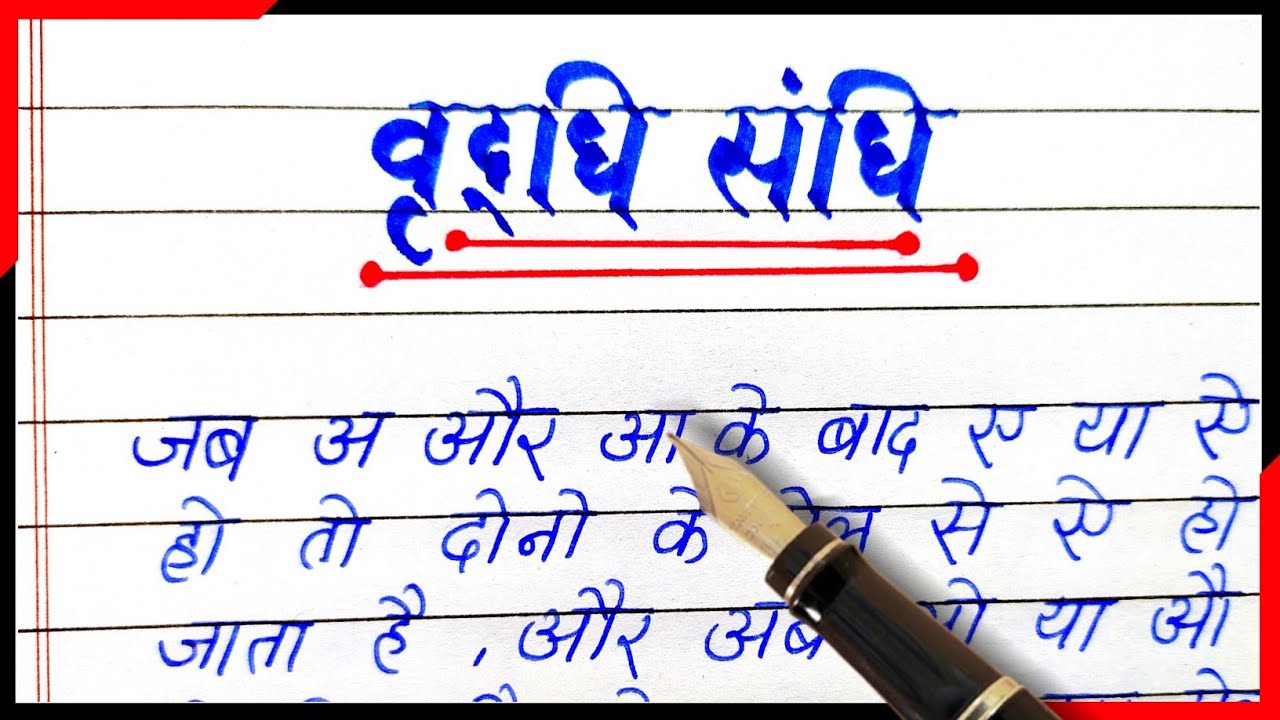 वृद्धि संधि
जब अ और आ के बाद ए या ऐ
हो तो दोनो के से ऐ हो
जाता है , और अब या औ